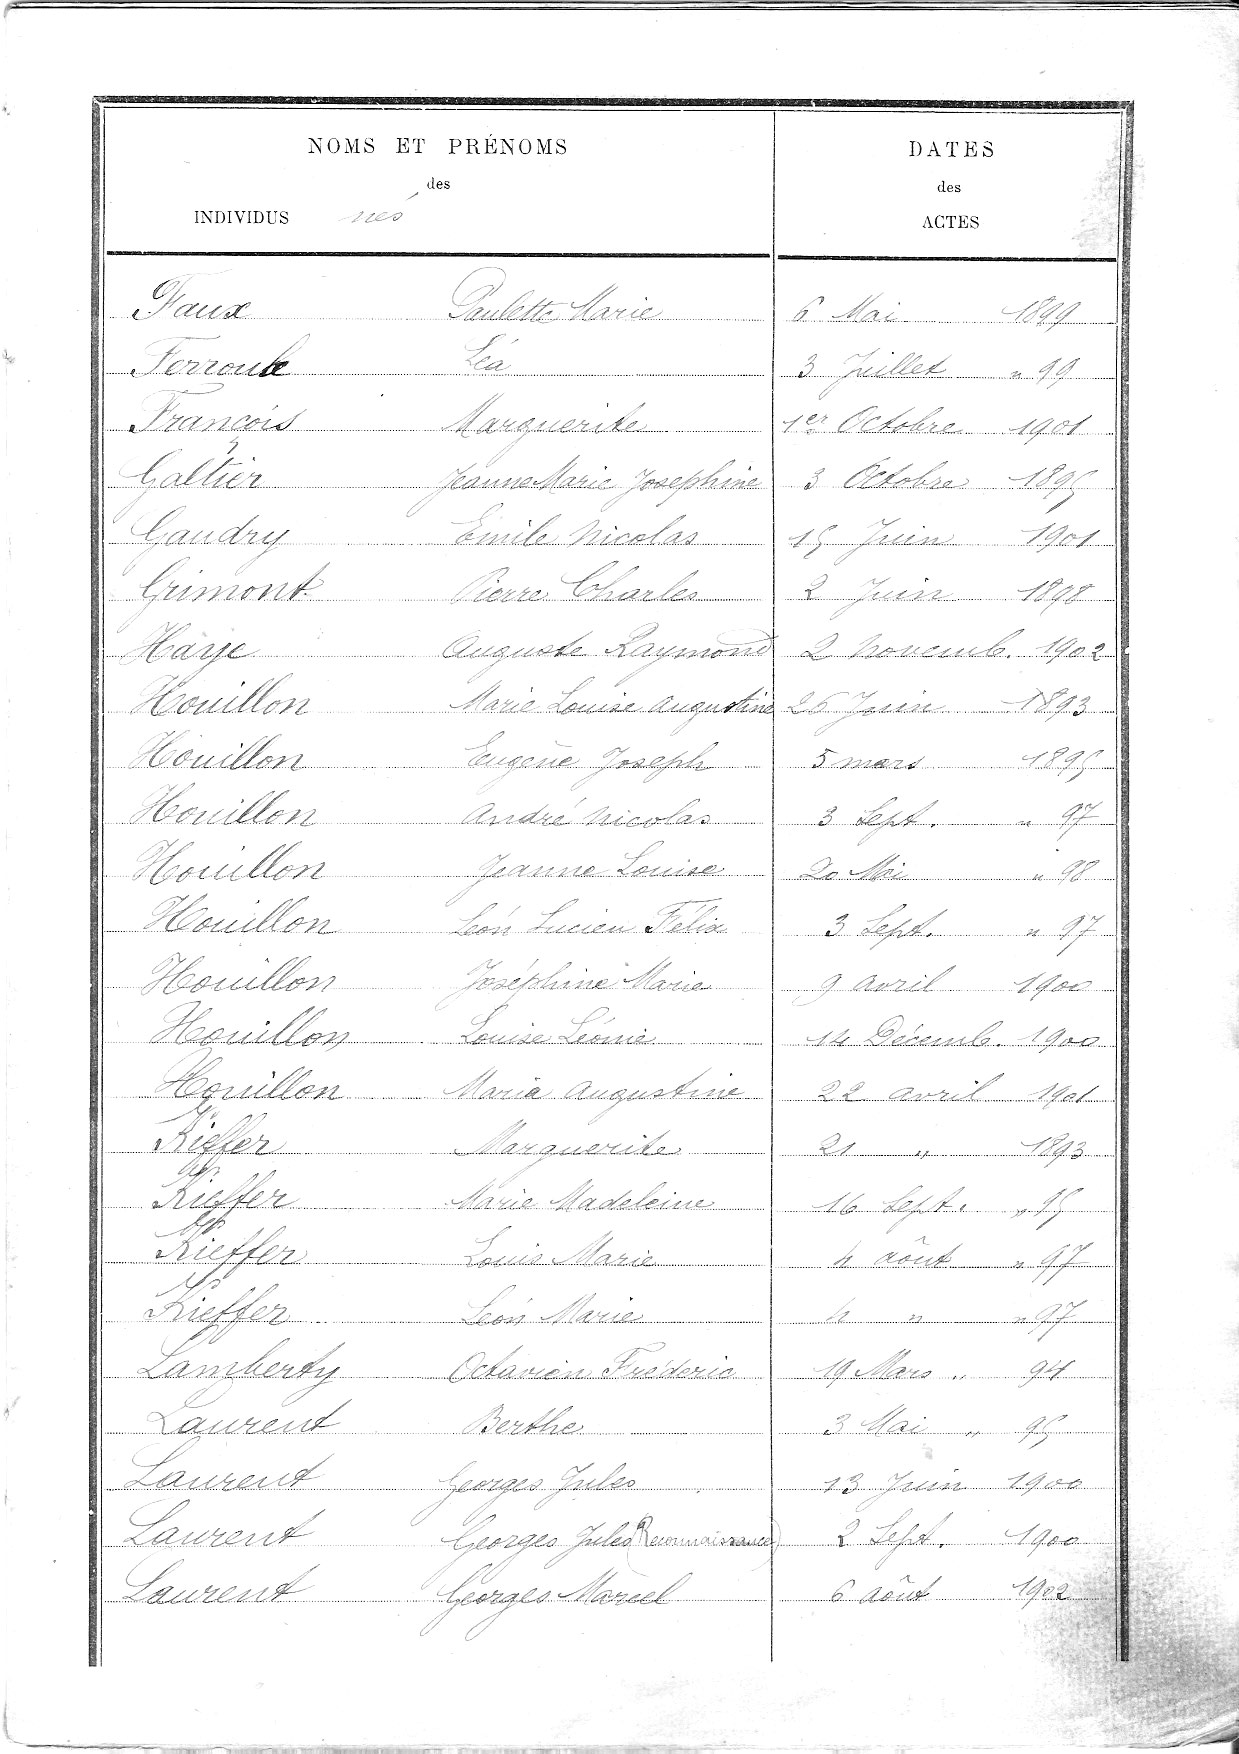 NOMS ET PRÉNOMS
des
INDIVIDUS nés
DATES
des
ACTES
Faux Paulette Marie 6 Mai 1899
Ferroule Léa 3 Juillet " 99
François Marguerite 1er Octobre 1901
Galtier Jeanne Marie Josephine 3 Octobre 1895
Gaudry Emile Nicolas 15 Juin 1901
Grimont Pierre Charles 2 Juin 1898
Haye Auguste Raymond 2 Novemb. 1902
Houillon Marie Louise Augustine 26 Juin 1893
Houillon Eugène Joseph 5 mars 1895
Houillon André Nicolas 3 Sept. " 97
Houillon Jeanne Louise 20 Mai " 98
Houillon Léon Lucien Félix 3 Sept. " 97
Houillon Joséphine Marie 9 avril 1900
Houillon Louise Léonie 14 Décemb. 1900
Houillon Maria Augustine 22 avril 1901
Kieffer Marguerite 21 " 1893
Kieffer Marie Madeleine 16 Sept. " 95
Kieffer Louis Marie 4 aôut " 97
Kieffer Léon Marie 4 " " 97
Lamberty Octavien Fréderic 19 Mars " 94
Laurent Berthe 3 Mai " 95
Laurent Georges Jules 13 Juin 1900
Laurent Georges Jules (Reconnaissance) 2 Sept. 1900
Laurent Georges Marcel 6 aôut 1902